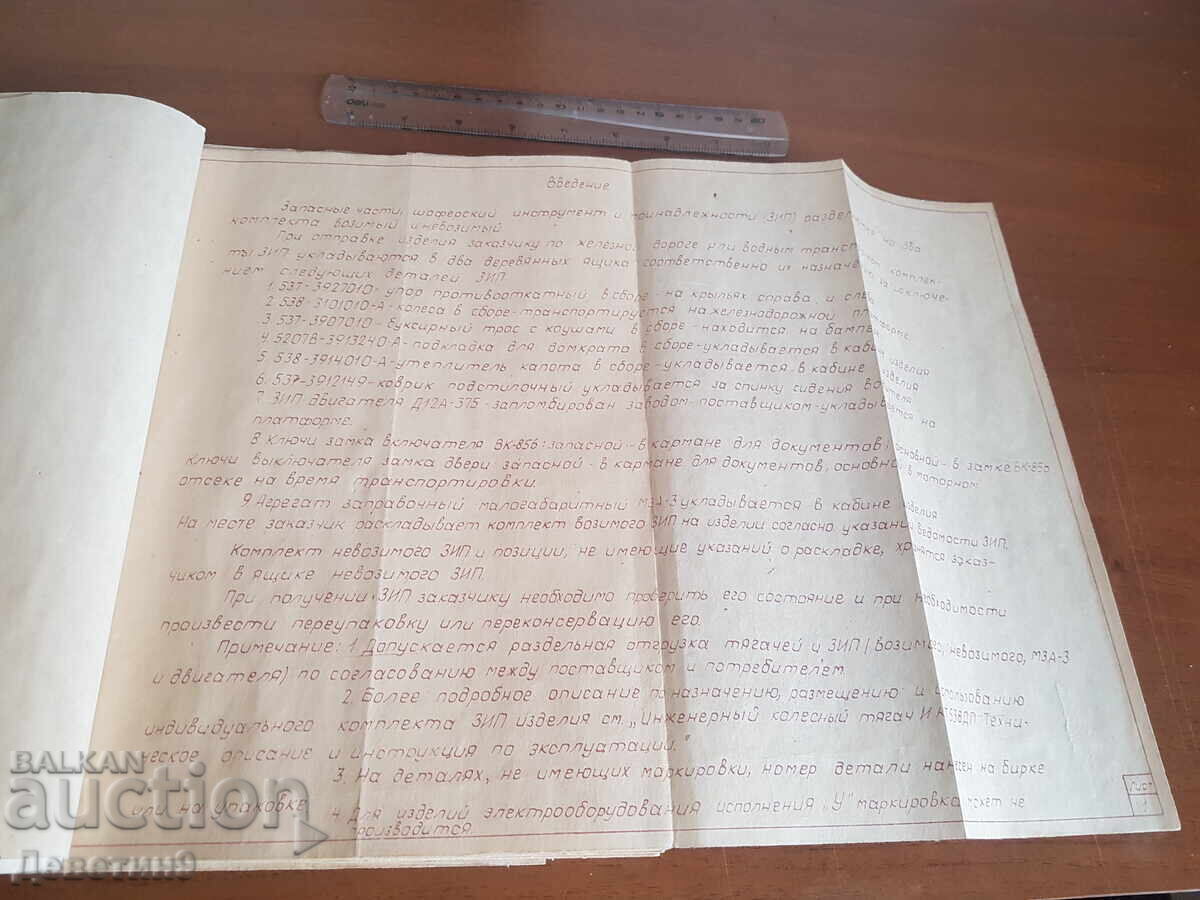 deli
Введение.
Запасные части, шоферский инструмент и принадлежности (ЗИП) разделяются на два
комплекта возимый и невозимый.
При отправке изделия заказчику по железной дороге или водным транспортом, комплек-
ты ЗИП укладываются в два деревянных ящика соответственно их назначению, за исключе-
нием следующих деталей ЗИП.
1. 537-3927010- упор противооткатный, в сборе - на крыльях справа, и слева
2. 538-3101010-А- колеса в сборе-транспортируется на железнодорожной платформе.
3. 537-3907010- буксирный трос с коушами в сборе - находится на бампере
4. 5207В-3913240-А-подкладка для домкрата в сборе-укладывается в кабине изделия
5. 538-3914010-А-утеплитель капота в сборе-укладывается в кабине изделия
6. 537-3912149-коврик подстилочный укладывается за спинку сидения водителя
7. ЗИП двигателя Д12А-375-запломбирован заводом-поставщиком-укладывается на
платформе.
8. Ключи замка включателя ВК-856: запасной - в кармане для документов, основной - в замке ВК-856
ключи выключателя замка двери запасной - в кармане для документов, основной в моторном
отсеке на время транспортировки.
9 Агрегат заправочный малогабаритный МЗА-3 укладывается в кабине изделия
На месте заказчик раскладывает комплект возимого ЗИП на изделии согласно указаний ведомости ЗИП.
Комплект невозимого ЗИП и позиции, не имеющие указаний о раскладке, хранятся заказ-
чиком в ящике невозимого ЗИП.
При получении ЗИП заказчику необходимо проверить его состояние и при необходимости
произвести переупаковку или переконсервацию его.
Примечание: 1. Допускается раздельная отгрузка тягачей и ЗИП (возимого, невозимого, МЗА-3
и двигателя) по согласованию между поставщиком и потребителем.
2. Более подробное описание по назначению, размещению и использованию
индивидуального комплекта ЗИП изделия см. „Инженерный колесный тягач ИКТ538ДП Техни-
ческое описание и инструкция по эксплуатации."
3. На деталях, не имеющих маркировки, номер детали нанесен на бирке
или на упаковке
4. Для изделий электрооборудования исполнения „У" маркировка может не
производится.
Лист
1
BALKAN
auction
Деветин9